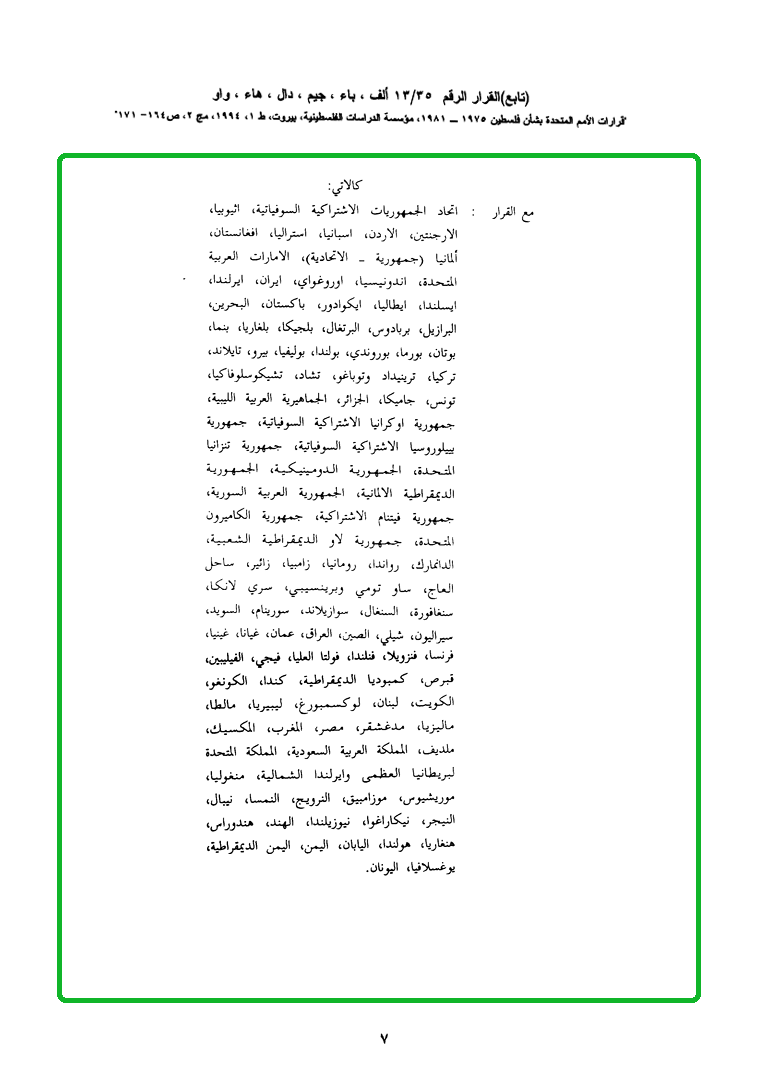 (تابع)القرار الرقم ١٣/٣٥ ألف ، باء ، جيم ، دال ، هاء ، واو
"قرارات الأمم المتحدة بشأن فلسطين ١٩٧٥ ــ ١٩٨١، مؤسسة الدراسات الفلسطينية، بيروت، ط ١، ١٩٩٤، مج ٢، ص١٦٤- ١٧١"
كالاتي:
مع القرار : اتحاد الجمهوريات الاشتراكية السوفياتية، اثيوبيا،
الارجنتين، الاردن، اسبانيا، استراليا، افغانستان،
ألمانيا (جمهورية ــ الاتحادية)، الامارات العربية
المتحدة، اندونيسيا، اوروغواي، ايران، ايرلندا،
ايسلندا، ايطاليا، ايكوادور، باكستان، البحرين،
البرازيل، بربادوس، البرتغال، بلجيكا، بلغاريا، بنما،
بوتان، بورما، بوروندي، بولندا، بوليفيا، بيرو، تايلاند،
تركيا، ترينيداد وتوباغو، تشاد، تشيكوسلوفاكيا،
تونس، جاميكا، الجزائر، الجماهيرية العربية الليبية،
جمهورية اوكرانيا الاشتراكية السوفياتية، جمهورية
بييلوروسيا الاشتراكية السوفياتية، جمهورية تنزانيا
المتحدة، الجمهورية الدومينيكية، الجمهورية
الديمقراطية الالمانية، الجمهورية العربية السورية،
جمهورية فيتنام الاشتراكية، جمهورية الكاميرون
المتحدة، جمهورية لاو الديمقراطية الشعبية،
الدانمارك، رواندا، رومانيا، زامبيا، زائير، ساحل
العاج، ساو تومي وبرينسيبي، سري لانكا،
سنغافورة، السنغال، سوازيلاند، سورينام، السويد،
سيراليون، شيلي، الصين، العراق، عمان، غيانا، غينيا،
فرنسا، فنزويلا، فنلندا، فولتا العليا، فيجي، الفيليبين،
قبرص، كمبوديا الديمقراطية، كندا، الكونغو،
الكويت، لبنان، لوكسمبورغ، ليبيريا، مالطا،
ماليزيا، مدغشقر، مصر، المغرب، المكسيك،
ملديف، المملكة العربية السعودية، المملكة المتحدة
لبريطانيا العظمى وايرلندا الشمالية، منغوليا،
موريشيوس، موزامبيق، النرويج، النمسا، نيبال،
النيجر، نيكاراغوا، نيوزيلندا، الهند، هندوراس،
هنغاريا، هولندا، اليابان، اليمن، اليمن الديمقراطية،
يوغسلافيا، اليونان.
٧